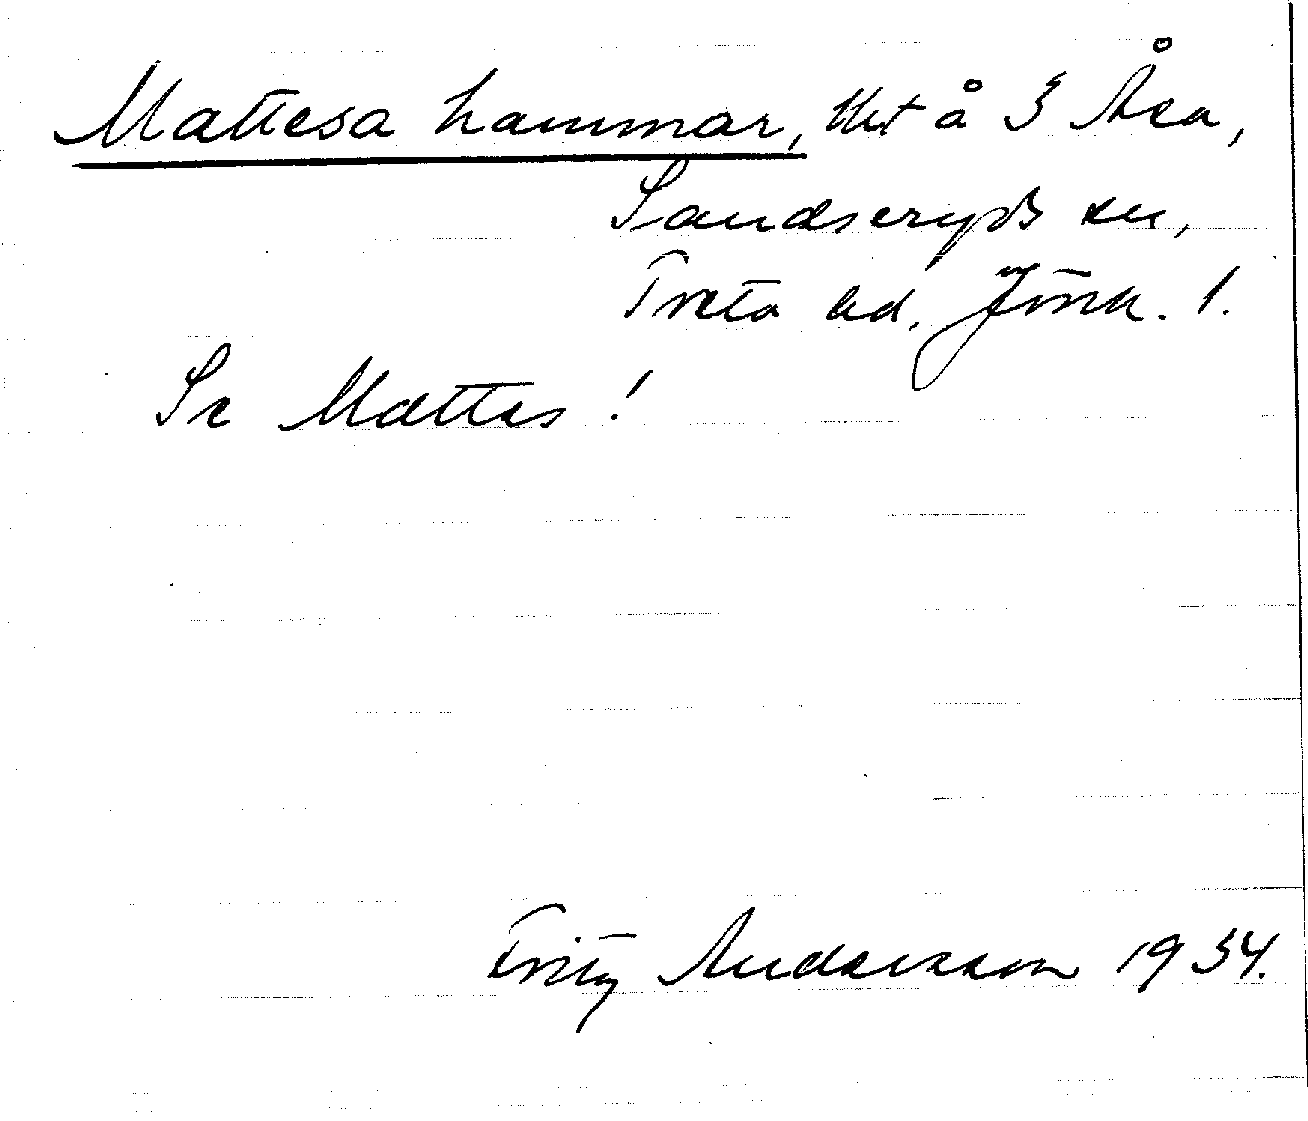 Mattesa hammar, tht å 3 Åsa,
Sandseryds sn,
Tveta hd, Jönk. l.
Se Mattes!
Fritz Andersson 1934.